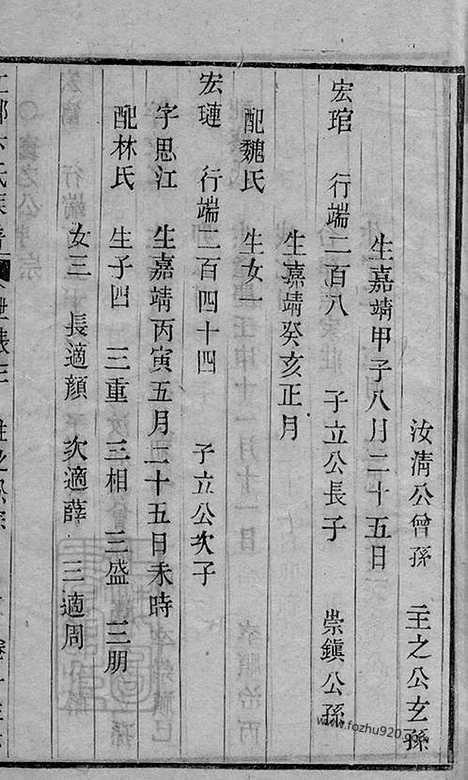 汝清公曾孫 主之公玄孫
生嘉靖甲子八月二十五日
宏琯 行端二百八 子立公長子 崇鎮公孫
生嘉靖癸亥正月
配魏氏 生女一
宏璉 行端二百四十四 子立公次子
字思江 生嘉靖丙寅五月二十五日未時
配林氏 生子四 三重 三相 三盛 三朋
女三 長適顏 次適薛 三適周
www.fozhu920.com